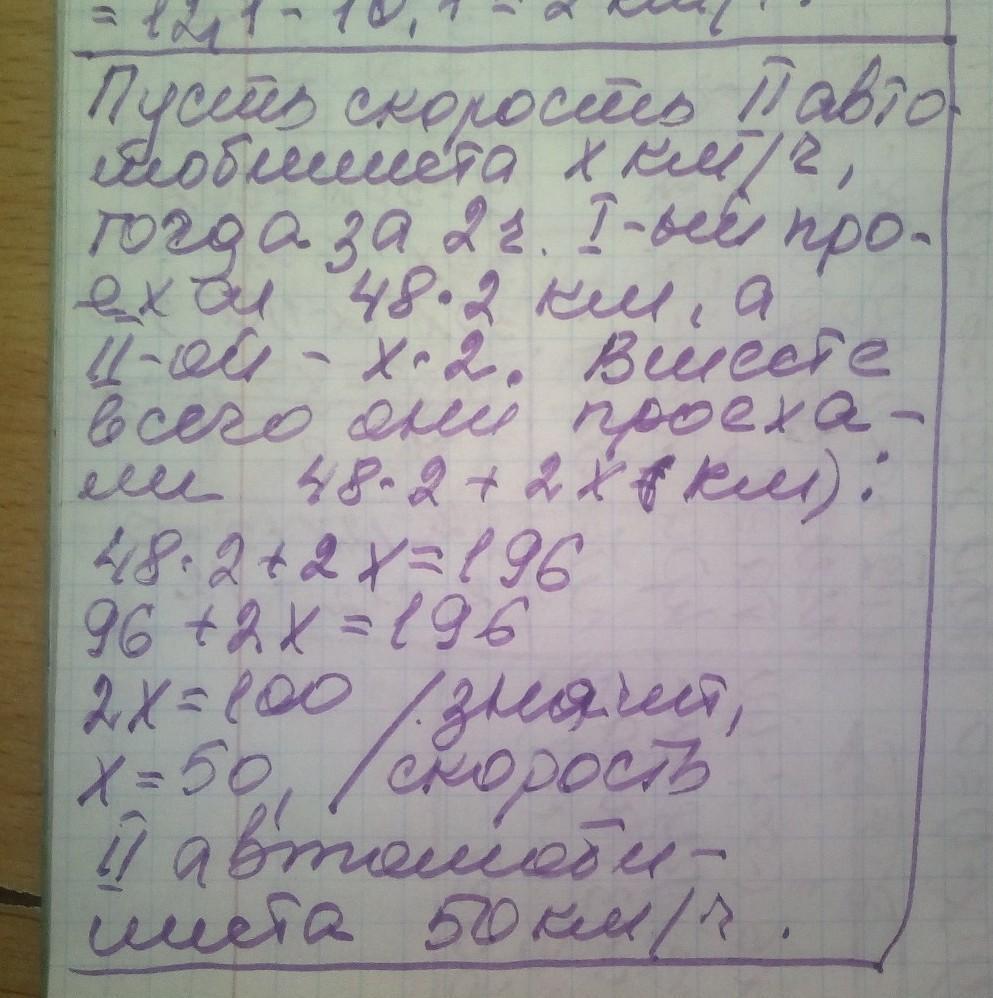 = 12,1 - 10,1 = 2 км/ч.
Пусть скорость II авто-
мобилиста х км/ч,
тогда за 2ч. I-ый про-
ехал 48·2 км, а
II-ой - х·2. Вместе
всего они проеха-
ли 48·2 + 2х (км):
48·2+2х=196
96+2х=196
2х=100 /значит,
х=50, /скорость
II автомоби-
листа 50км/ч.